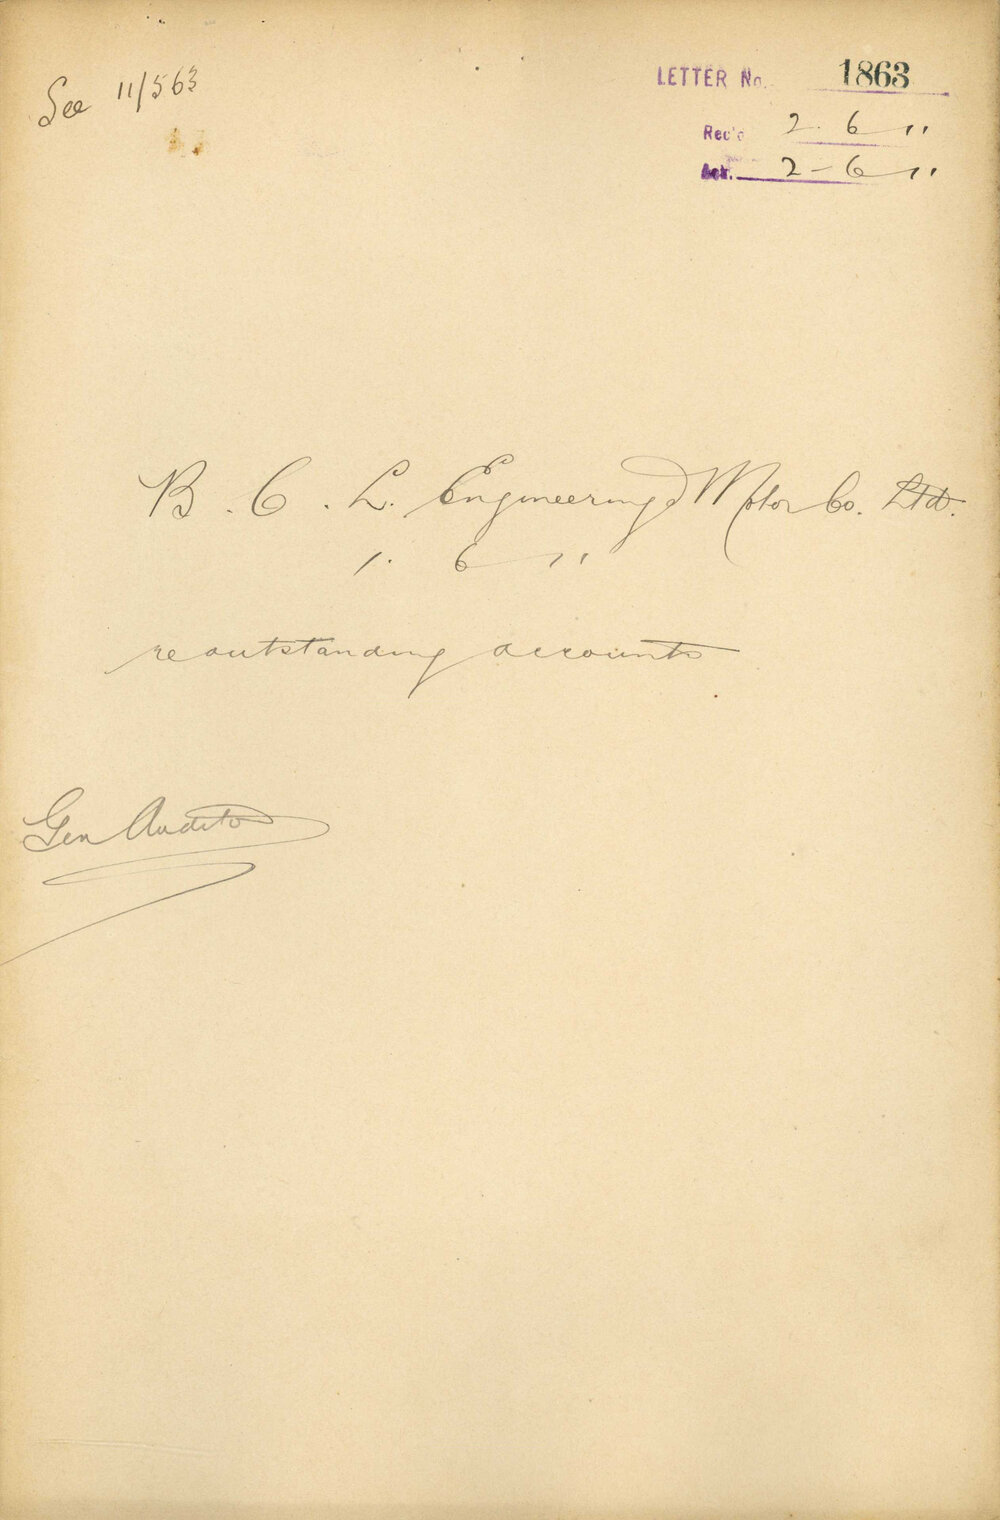 See 11/563
LETTER No. 1863
Rec'd 2. 6. 11
Ack. 2-6-11
B. C. L. Engineering & Motor Co. Ltd.
1. 6. 11
re outstanding accounts
Gen Auditor